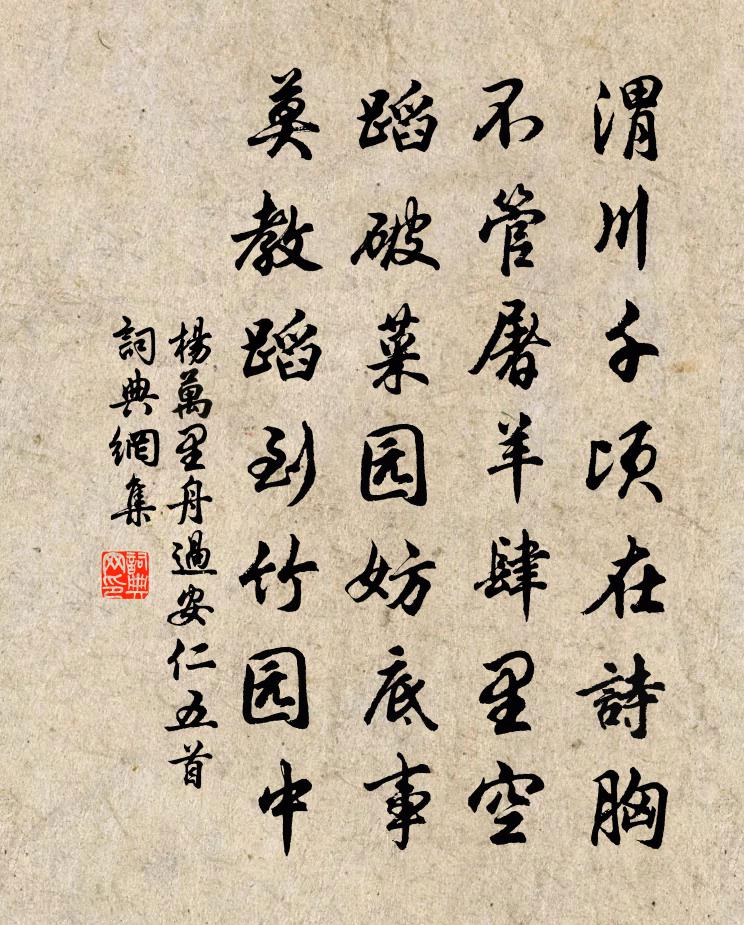 渭川千頃在詩胸
不管屠羊肆里空
蹈破菜园妨底事
莫教蹈到竹园中
楊萬里舟過安仁五首
詞典網集
詞典
网印